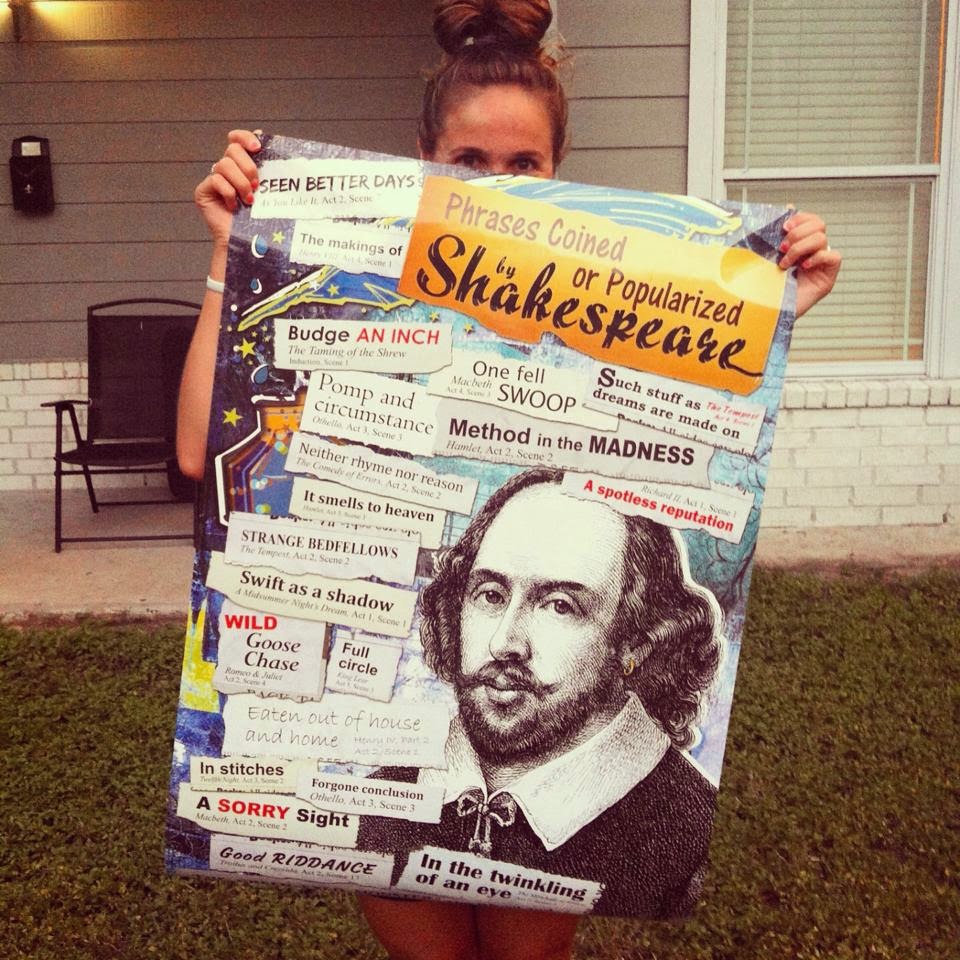 SEEN BETTER DAYS
As You Like It, Act 2, Scene 7
Phrases Coined
or Popularized
by
Shakespeare
The makings of
Henry VIII, Act 4, Scene 1
Budge AN INCH
The Taming of the Shrew
Induction, Scene 1
One fell
SWOOP
Macbeth
Act 4, Scene 3
Such stuff as
dreams are made on
The Tempest
Pomp and
circumstance
Othello, Act 3, Scene 3
Method in the MADNESS
Hamlet, Act 2, Scene 2
Neither rhyme nor reason
The Comedy of Errors, Act 2, Scene 2
Richard II, Act 1, Scene 1
A spotless reputation
It smells to heaven
Hamlet, Act 3, Scene 3
STRANGE BEDFELLOWS
The Tempest, Act 2, Scene 2
Swift as a shadow
A Midsummer Night's Dream, Act 1, Scene 1
WILD
Goose
Chase
Romeo & Juliet
Act 2, Scene 4
Full
circle
King Lear
Act 5, Scene 3
Eaten out of house
and home
Henry IV, Part 2
Act 2, Scene 1
In stitches
Twelfth Night, Act 3, Scene 2
Forgone conclusion
Othello, Act 3, Scene 3
A SORRY Sight
Macbeth, Act 2, Scene 2
Good RIDDANCE
Troilus and Cressida, Act 2, Scene 1
In the twinkling
of an eye